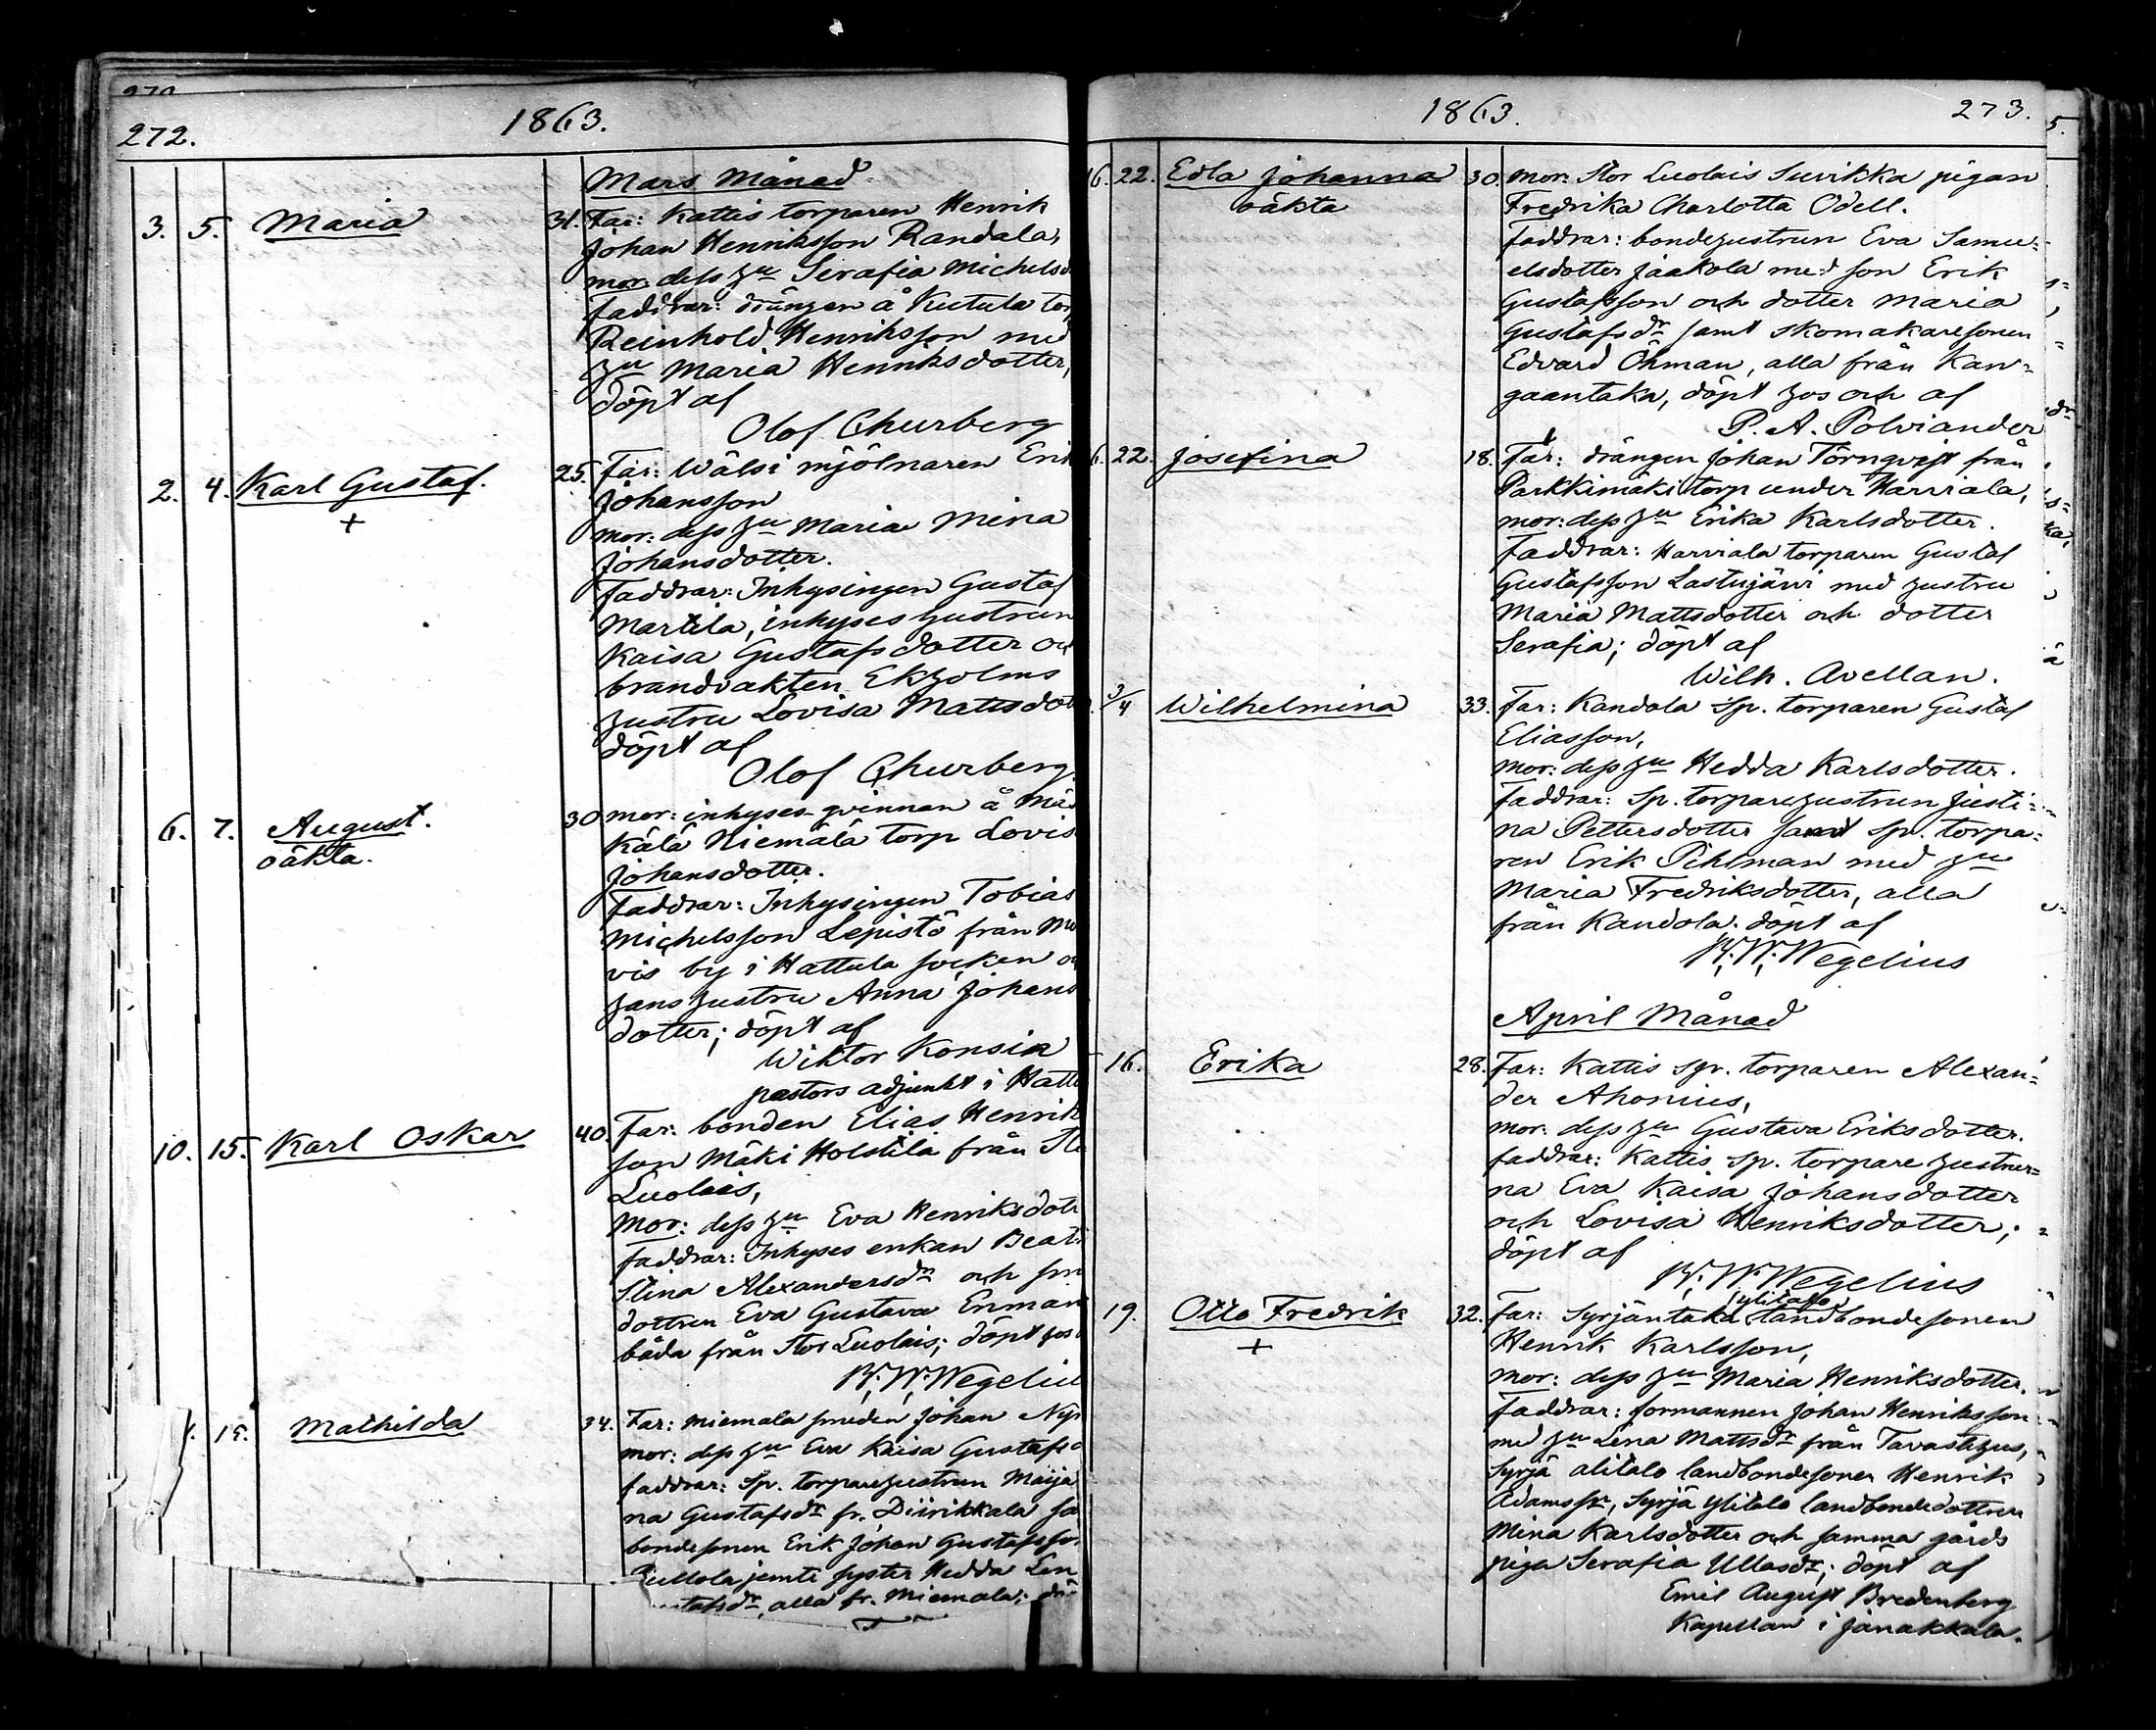 270
272.
1863.
Mars Månad
3. 5. Maria 31. Far: Kattis torparen Henrik
Johan Henriksson Randala,
mor: dess hu Serafia Michelsd
faddrar: drängen å Kutula tor
Reinhold Henriksson med
hu Maria Henriksdotter,
döpt af
Olof Churberg
2. 4. Karl Gustaf. 25. Far: Wälsi mjölnaren Erik
+
Johansson
mor: dess hu Maria Mina
Johansdotter.
Faddrar: Inhysingen Gustaf
Martila, inhyses hustrun
Kaisa Gustafsdotter oc
brandvakten Ekholms
hustru Lovisa Mattsdott
döpt af
Olof Churberg.
6. 7. August. 30 mor: inhyses qvinnan å Mäs
oäkta.
kälä Niemälä torp Lovis
Johansdotter.
Faddrar: Inhysingen Tobias
Michelsson Lepistö från Me
vis by i Hattula socken o
hans hustru Anna Johans
dotter; döpt af
Wiktor Konsin
pastors adjunkt i Hatt
10. 15. Karl Oskar 40. Far: bonden Elias Henrik
son Mäki Holstila från Sto
Luolais,
Mor: dess hu Eva Henriksdott
faddrar: Inhyses enkan Beat
Stina Alexandersdr och son
dottren Eva Gustava Enman
båda från Stor Luolais; döpt hos
W. Wegeliu
15. Mathilda 34. Far: Miemala smeden Johan Ny
mor: dess hu Eva Kaisa Gustafsd
faddrar: Sp. torparehustrun Maija
na Gustafsdr fr. Diirikkala sa
bondesonen Erik Johan Gustafsso
Pullola jemte syster Hedda Len
tafsdr, alla fr. Miemala; dö
1863.
273.
16. 22. Edla Johanna 30. mor: Stor Luolais Suvikka pigan
oäkta
Fredrika Charlotta Odell.
Faddrar: bondehustrun Eva Samu=
elsdotter Jaakola med son Erik
Gustafsson och dotter Maria
Gustafsdr samt skomakaresonen
Edvard Öhman, alla från Kan=
gaantaka, döpt hos och af
P. A. Polviander
6. 22. Josefina 18. Far: drängen Johan Törnqvist från
Parkkimäki torp under Harviala,
mor: dess hu Erika Karlsdotter.
Faddrar: Harviala torparen Gustaf
Gustafsson Lastujärvi med hustru
Maria Mattsdotter och dotter
Serafia; döpt af
Wilh. Avellan.
3/4 Wilhelmina 33. Far: Kandola Sp. torparen Gustaf
Eliasson,
mor: dess hu Hedda Karlsdotter.
faddrar: Sp. torparehustrun Justi=
na Pettersdotter samt sp. torpa=
ren Erik Pihlman med hu
Maria Fredriksdotter, alla
från Kandola. döpt af
W. Wegelius
April Månad
16. Erika 28. Far: Kattis spr. torparen Alexan=
der Ahonius,
mor: dess hu Gustava Eriksdotter.
faddrar: Kattis sp. torpare hustrur=
na Eva Kaisa Johansdotter
och Lovisa Henriksdotter;
döpt af
W. Wegelius
19. Otto Fredrik 32. Far: Syrjäntaka ylitalo landbondesonen
+
Henrik Karlsson,
mor: dess hu Maria Henriksdotter.
Faddrar: formannen Johan Henriksson
med hu Lena Mattsdr från Tavastehus,
Syrjä alitalo landbondesonen Henrik
Adamsson, Syrjä ylitalo landbondedottren
Mina Karlsdotter och samma gårds
piga Serafia Ullasdr; döpt af
Emil August Bredenberg
Kapellan i Janakkala.